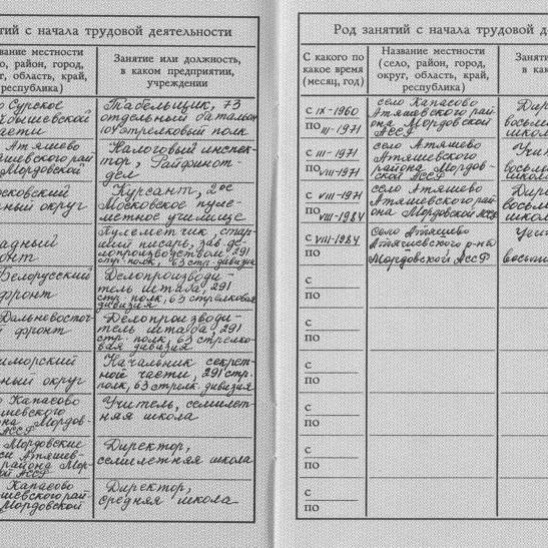 тий с начала трудовой деятельности
вание местности
о, район, город,
г, область, край,
республика)
Занятие или должность,
в каком предприятии,
учреждении
о Сурское
йбышевской
асти
Табельщик, 73
отдельный баталион
104 стрелковый полк
Атяшево
яшевского рай
Мордовской
Налоговый инспек-
тор, Райфинот-
дел
сковский
ный округ
Курсант, 2ое
Московское пуле-
метное училище
адный
онт
Пулеметчик, стар-
ший писарь, зав. де-
лопроизводством, 291
стр. полк, 63 стр. дивизия
Белорусский
фронт
Делопроизводи-
тель штаба, 291
стр. полк, 63 стрелковая
дивизия
Дальневосточ-
й фронт
Делопроизводи-
тель штаба, 291
стр. полк, 63 стрелко-
вая дивизия
иморский
ный округ
Начальник секрет-
ной части, 291 стр.
полк, 63 стрелк. дивизия
о Капасово
яшевского
она Мордов-
АССР
Учитель, семилет-
няя школа
Мордовские
си Атяшев-
района Мор-
ой АССР
Директор,
семилетняя школа
Капасово
яшевского рай-
Мордовской
Директор,
средняя школа
Род занятий с начала трудовой д
С какого по
какое время
(месяц, год)
Название местности
(село, район, город,
округ, область, край,
республика)
Заня
в как
с IX-1960
по III-1971
село Капасово
Атяшевского рай
она Мордовской
АССР
Дир
восьм
школ
с III-1971
по VIII-1971
село Атяшево
Атяшевского
района Мордов-
ской АССР
Учит
восьм
школ
с VIII-1971
по VIII-1984
село Атяшево
Атяшевского рай-
она Мордовской АССР
Дир
восьм
школ
с VIII-1984
по
село Атяшево
Атяшевского р-на
Мордовской АССР
Учит
восьм
с
по
с
по
с
по
с
по
с
по
с
по